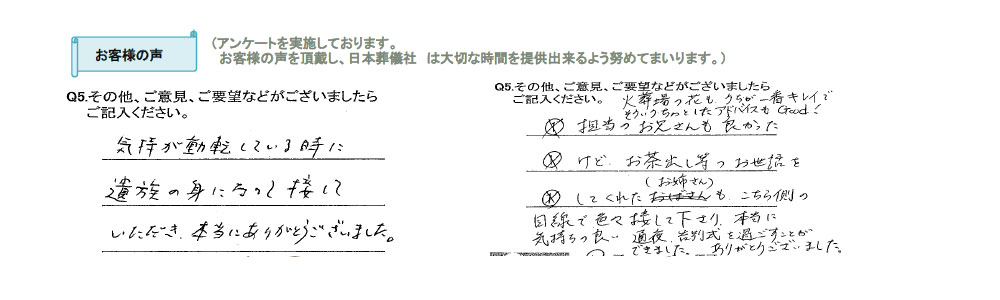 お客様の声
（アンケートを実施しております。
お客様の声を頂戴し、日本葬儀社　は大切な時間を提供出来るよう努めてまいります。）
Q5.その他、ご意見、ご要望などがございましたら
ご記入ください。
気持が動転している時に
遺族の身になって接して
いただき、本当にありがとうございました。
Q5.その他、ご意見、ご要望などがございましたら
ご記入ください。
火葬場の花も、うちが一番キレイで
そういうちょっとしたアドバイスもGood！
担当のお兄さんも良かった
けど、お茶出し等のお世話を
（お姉さん）
してくれたおばさんも、こちら側の
目線で色々接して下さり、本当に
気持ちの良い 通夜、告別式を過ごすことが
できました。ありがとうございました。